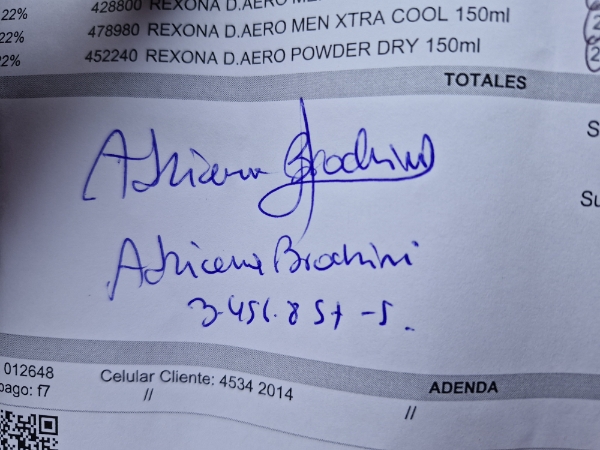 22% 428800 REXONA D.AERO
22% 478980 REXONA D.AERO MEN XTRA COOL 150ml
22% 452240 REXONA D.AERO POWDER DRY 150ml
TOTALES
S
Su
Adriana Brochini
Adriana Brochini
3.456.857-5.
012648
pago: f7
Celular Cliente: 4534 2014
//
ADENDA
//